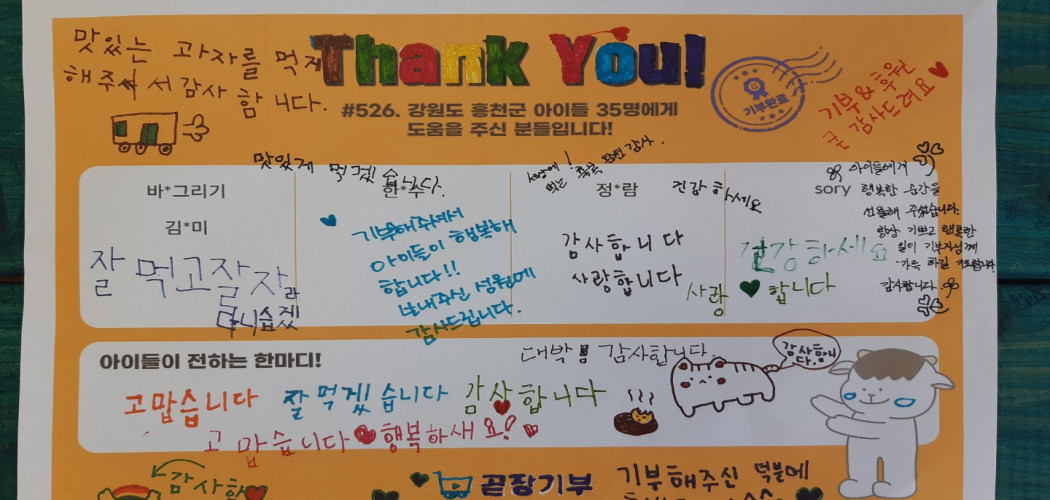 맛있는 과자를 먹게
해주셔서 감사합니다.
Thank You!
#526. 강원도 홍천군 아이들 35명에게
도움을 주신 분들입니다!
기부완료
기부&후원
감사드려요
맛있게 먹겠습니다.
바*그리기
김*미
잘 먹고잘자
한*수
기부해주셔서
아이들이 행복해
합니다!!
보내주신 성원에
감사드립니다.
정*람
건강하세요
감사합니다
사랑합니다
sory
건강하세요
사랑합니다
아이들에게
행복한 순간을
선물해 주셨습니다.
항상 기쁘고 행복한
일이 기부자님께
가득 하길
감사합니다.
아이들이 전하는 한마디!
대박 감사합니다.
감사합니다.
고맙습니다 잘먹겠습니다 감사합니다
고맙습니다 행복하새요!
감사합
곧장기부
기부해주신 덕분에